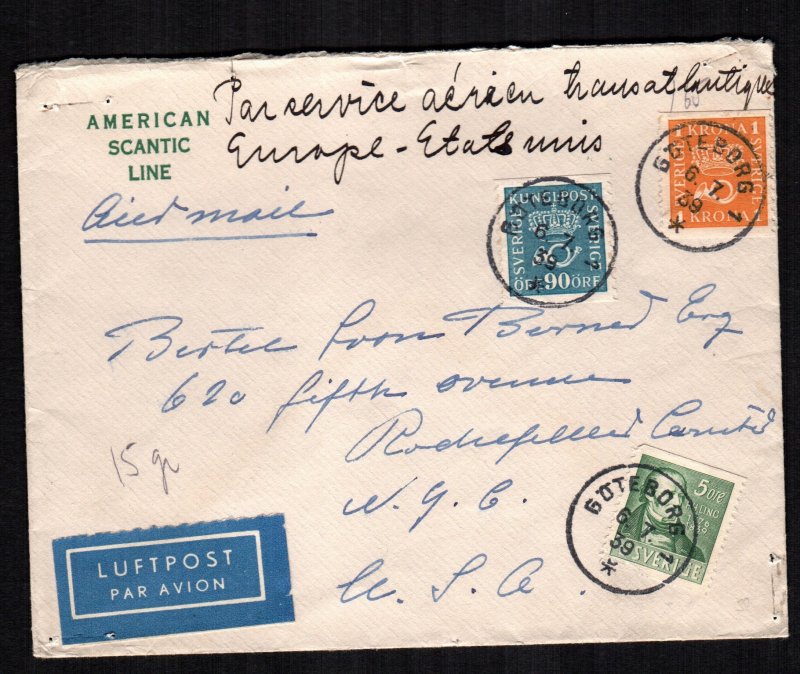 AMERICAN
SCANTIC
LINE
Par service aérien transatlantique
Europe - Etats unis
60
Aied mail
KRONA 1
SVERIGE
1 KRONA 1
GÖTEBORG 1
6. 7.
39
*
KUNGL. POST
SVERIGE SVERIGE
ÖRE 90 ÖRE
GÖTEBORG 1
6. 7.
39
*
Bertel
620 fifth avenue
Rockefeller Center
N. Y. C.
U. S. A.
15 gr
LUFTPOST
PAR AVION
5 ÖRE
LING
SVERIGE
GÖTEBORG 1
6. 7.
39
*